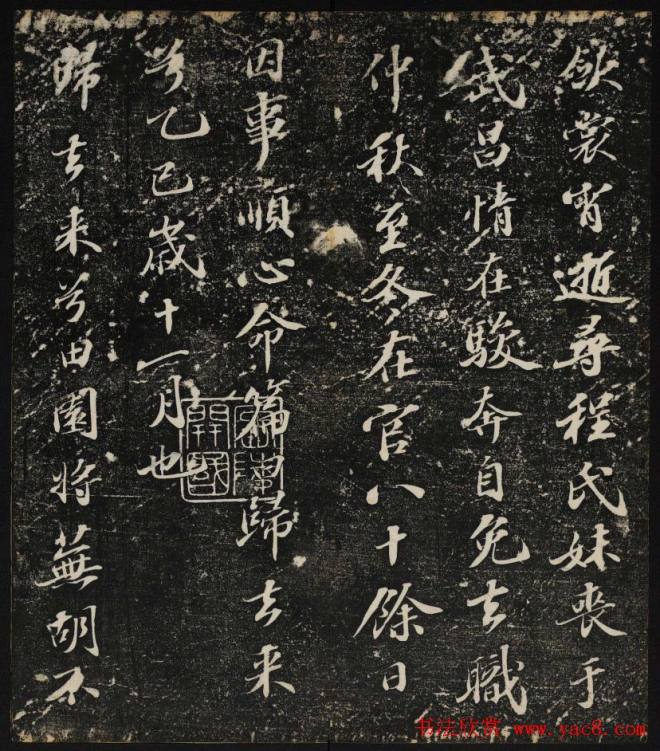 斂裳宵逝尋程氏妹喪于
武昌情在駿奔自免去職
仲秋至冬在官八十餘日
因事順心命篇曰歸去来
兮乙巳歲十一月也
歸去来兮田園将蕪胡不
书法欣赏 www.yac8.com